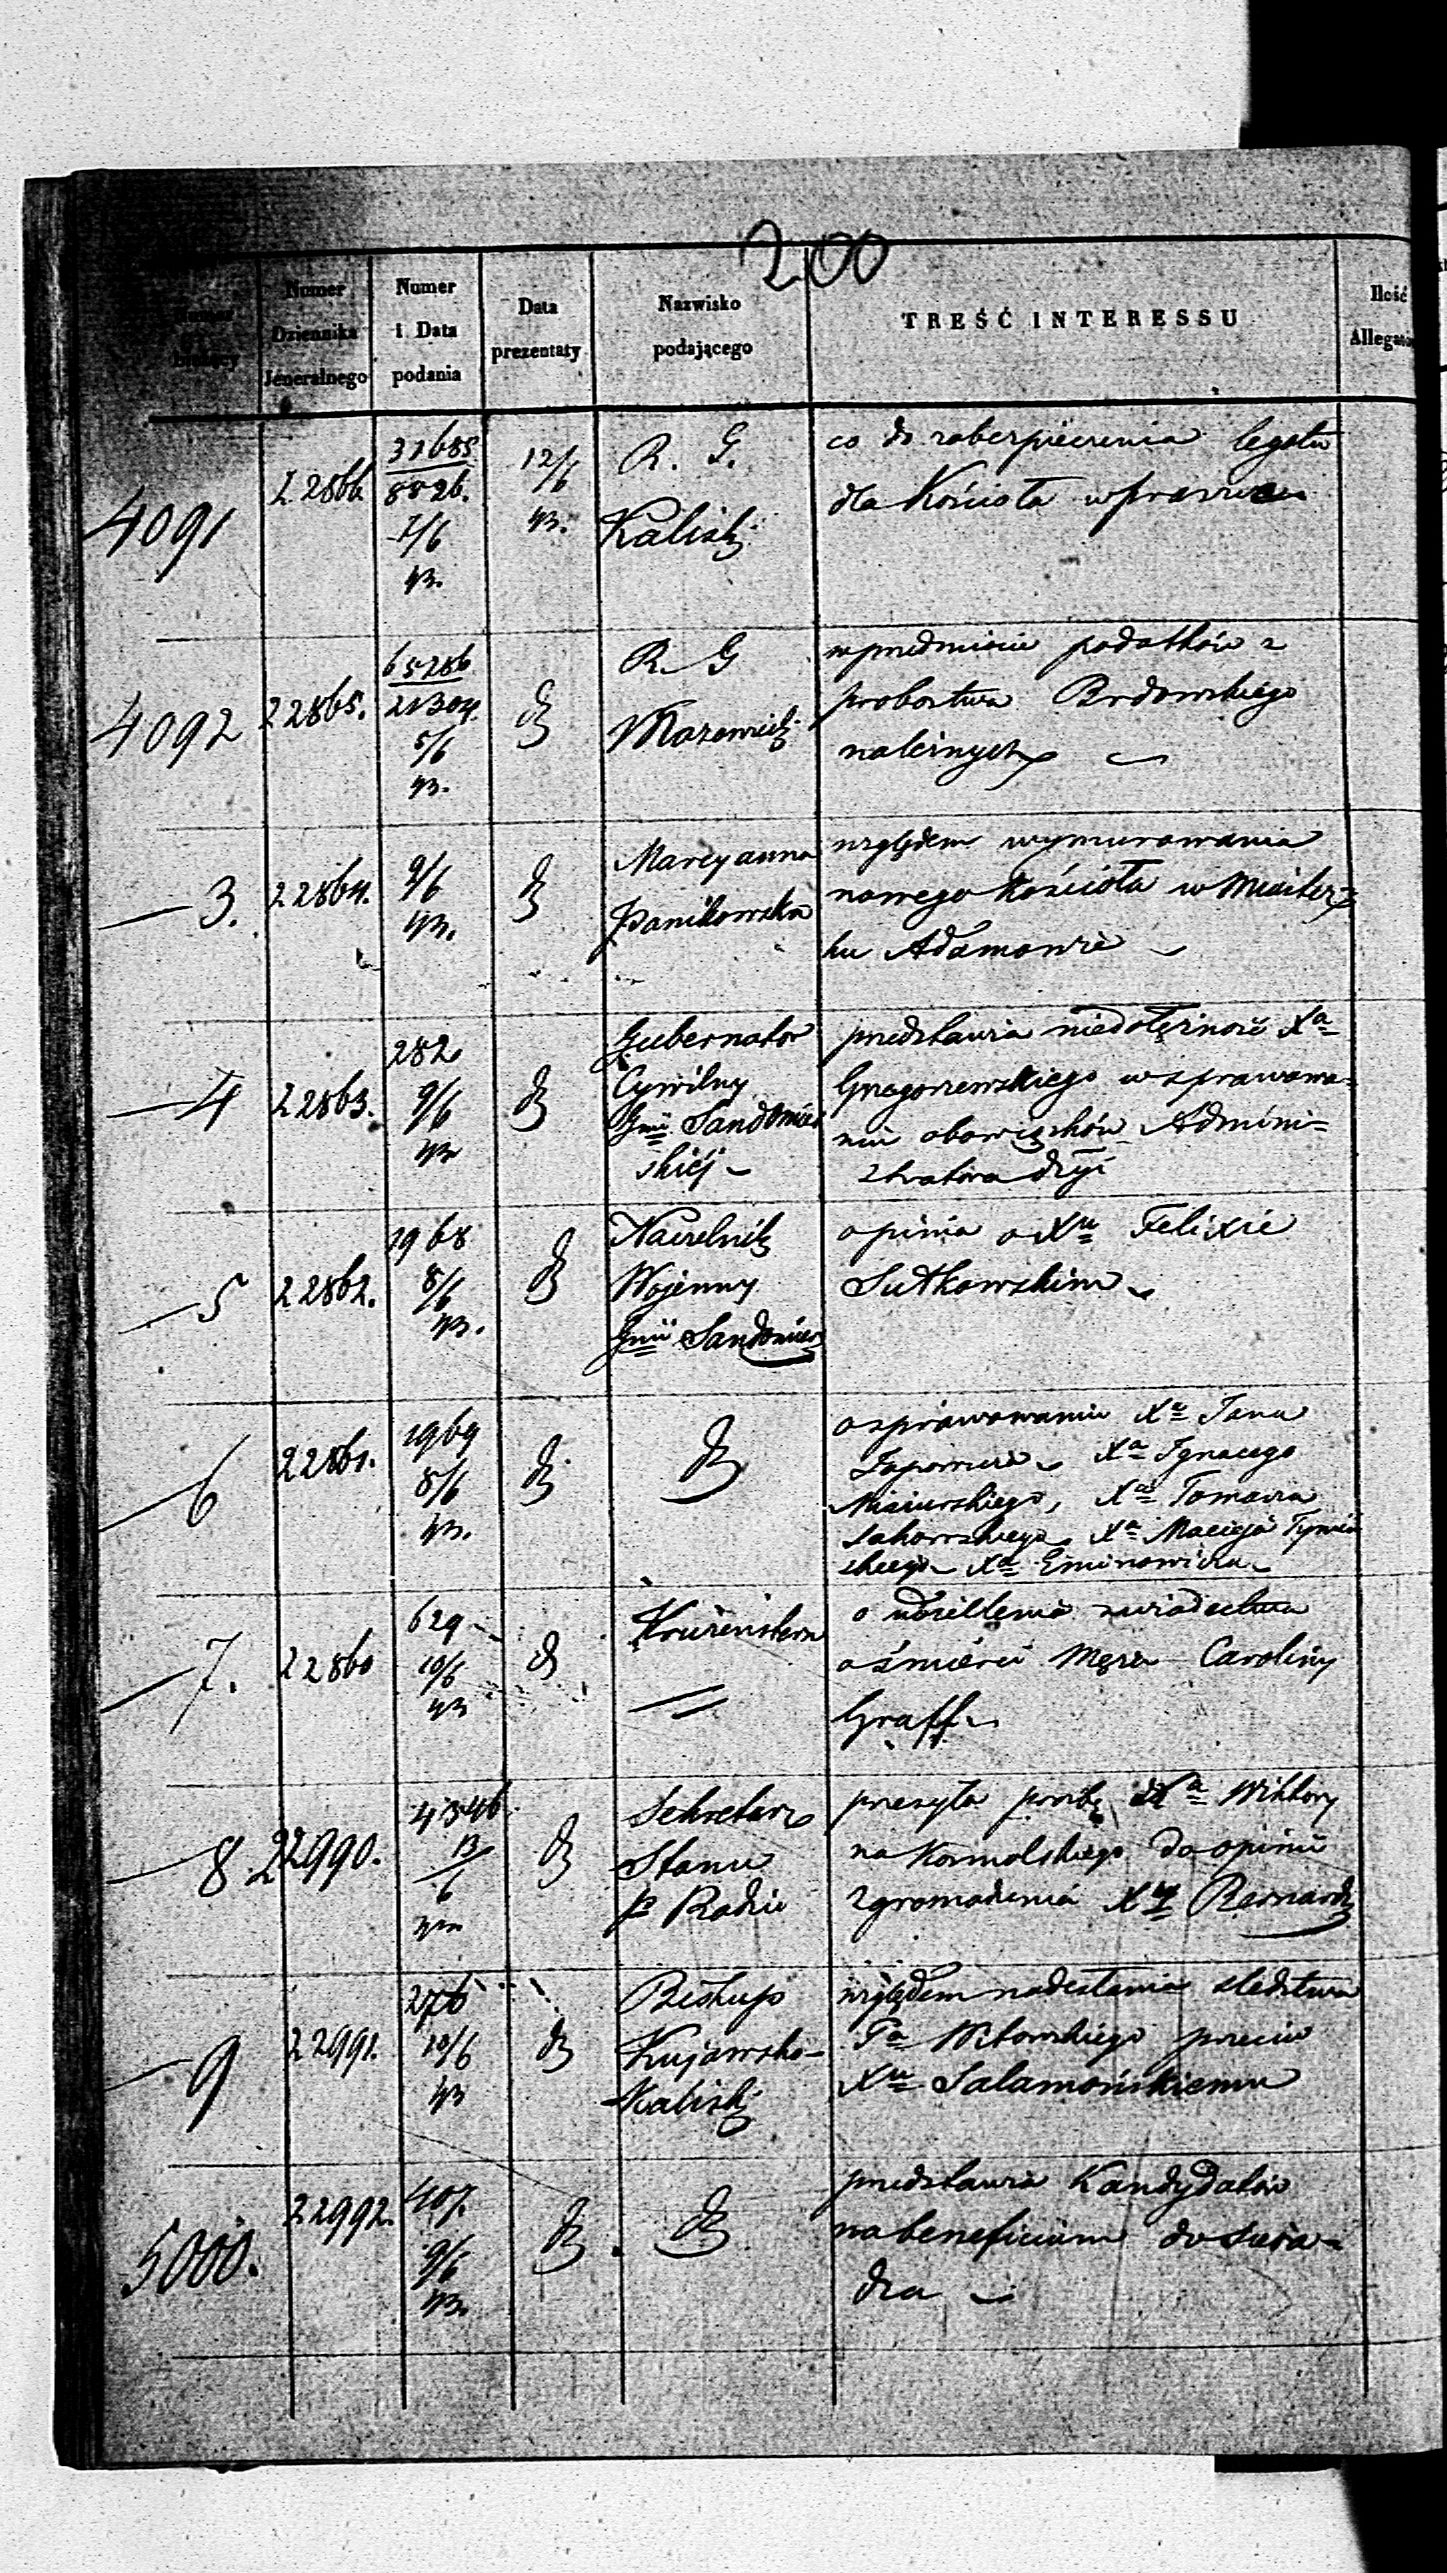 200
Numer bieżący
Numer Dziennika Jeneralnego
Numer i Data podania
Data prezentaty
Nazwisko podającego
TREŚĆ INTERESSU
Ilość Allegatów
4091
22866
31685
8826.
7/6
43.
12/6
43.
R. G.
Kalisk
co do zabezpieczenia legatu
dla Kościoła w
4092
22865.
65286
21304.
5/6
43.
R G
Mazowieck
w przedmiocie podatków z
probostwa Brdowskiego
należnych
3.
22864.
9/6
43.
Maryanna
Panikowska
względem wymurowania
nowego Kościoła w Miastecz=
ku Adamowie
4
22863.
282
9/6
43
Gubernator
Cywilny
Gnii Sandomier
skiéj
przedstawia niedołężność Xa
Gregorzewskiego w sprawowa=
niu obowiązków Admini=
stratora
5
22862.
1968
8/6
43.
Naczelnik
Wojenny
Gnii Sandomier
opinia o Xu Felixie
Sutkowskim
6
22861.
1969
8/6
43.
o sprawowaniu Xa Jana
Xa Ignacego
Xa Tomasza
Xa Macieja
skiego Xa Eminowicza
7.
22860
629
10/6
43
Kruzenstern
o udzielenie świadectwa
o śmierci Męża Caroliny
Graff
8
22990.
4346
13/6
43
Sekretarz
Stanu
p Radzie
przesyła prośbę Xa Wiktory
na Kosmolskiego do opinii
zgromadzenia XX Bernard
9
22991.
276
10/6
43
Biskup
Kujawsko-
Kaliski
względem nadesłania śledztwa
Pa Witowskiego przeciw
Xu Salamońskiemu
5000.
22992.
407.
9/6
43.
przedstawia Kandydatów
na beneficium do Siera=
dza